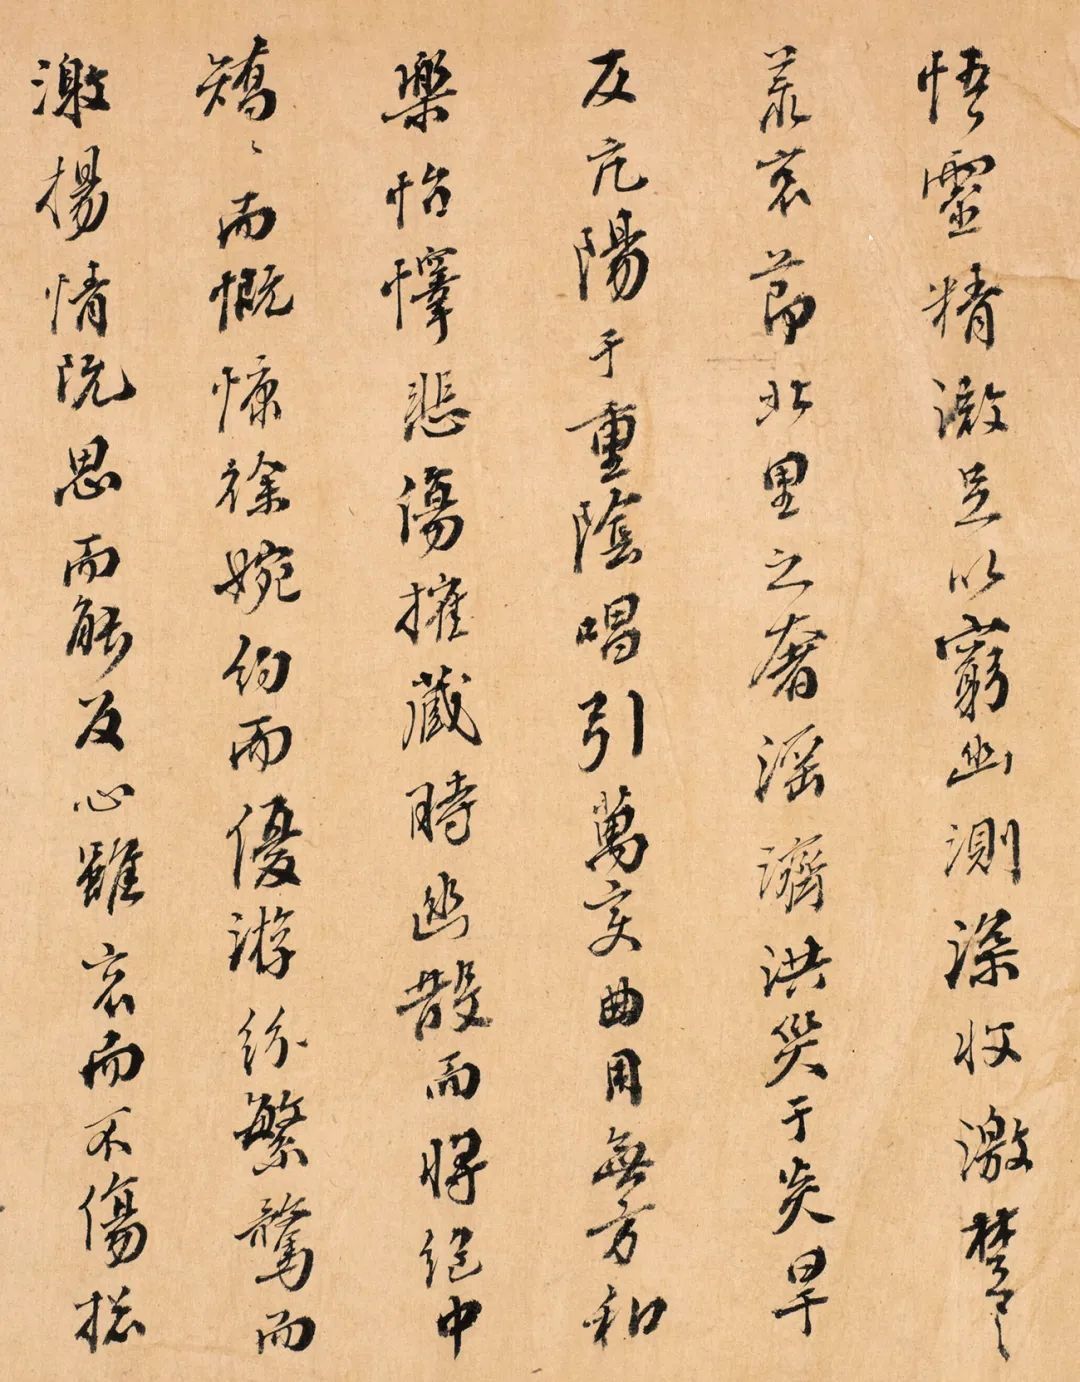 悟靈精微足以窮幽測深收激楚之
荒哀節北里之奢淫濟洪災于炎旱
反亢陽于重陰唱引萬变曲用無方和
樂怡懌悲傷摧藏時幽散而將絕中
矯〻而慨慷徐婉約而優游紛繁騖而
激揚情既思而能反心雖哀而不傷揔